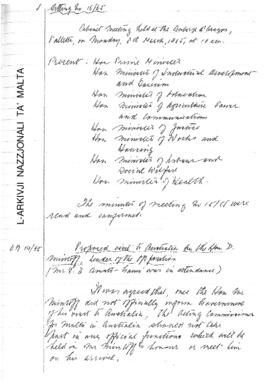 Sitting No 16/65
Cabinet Meeting held at the Auberge d'Aragon,
Valletta, on Monday, 8th March, 1965, at 10 am.
Present: Hon Prime Minister
Hon Minister of Industrial Development
and Tourism
Hon Minister of Education
Hon Minister of Agriculture Power
and Communications
Hon Minister of Justice
Hon Minister of Works and
Housing
Hon Minister of Labour and
Social Welfare
Hon Minister of Health.
The minutes of meeting No 15/65 were
read and confirmed.
Proposed visit to Australia by the Hon D.
Mintoff, Leader of the Opposition
was in attendance)
It was agreed that, once the Hon Mr
Mintoff did not officially inform Government
of his visit to Australia, the Acting Commissioner
for Malta in Australia should not take
part in any official functions which will be
held in Mr Mintoff's honour or meet him
on his arrival.
L-ARKIVJI NAZZJONALI TA' MALTA